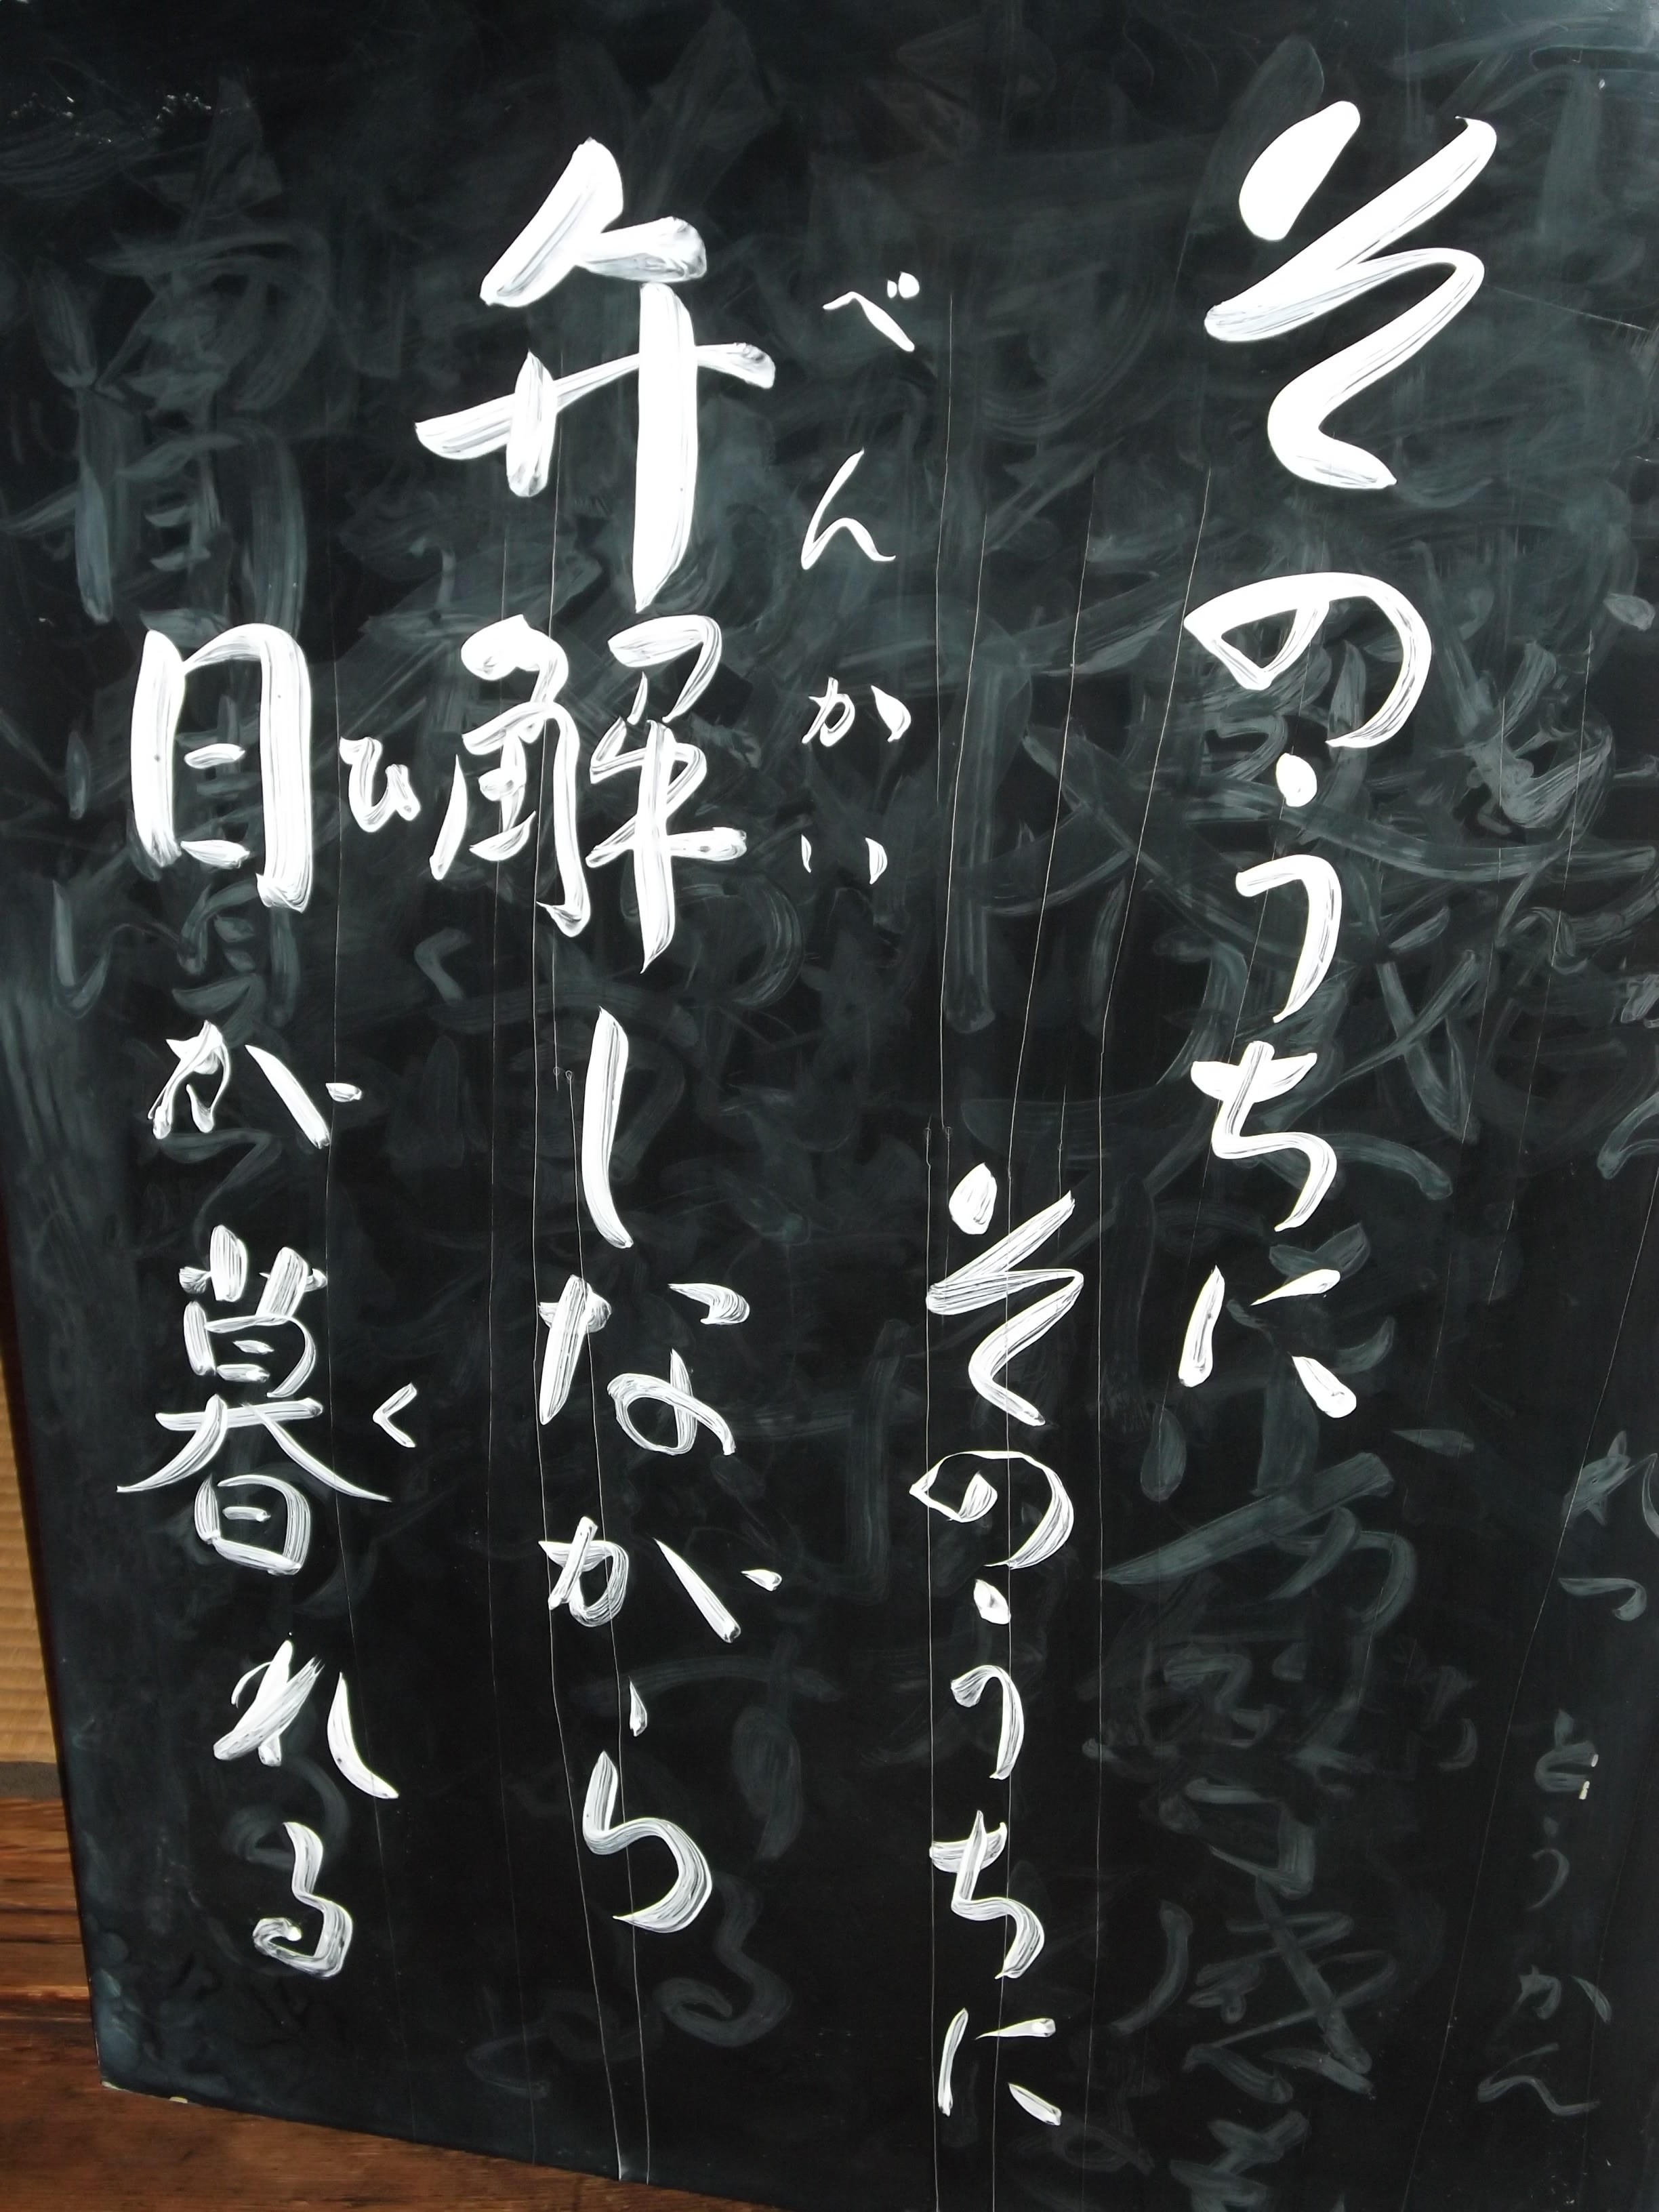 そのうちに
そのうちに
べんかい
弁解しながら
ひ
く
日が暮れる